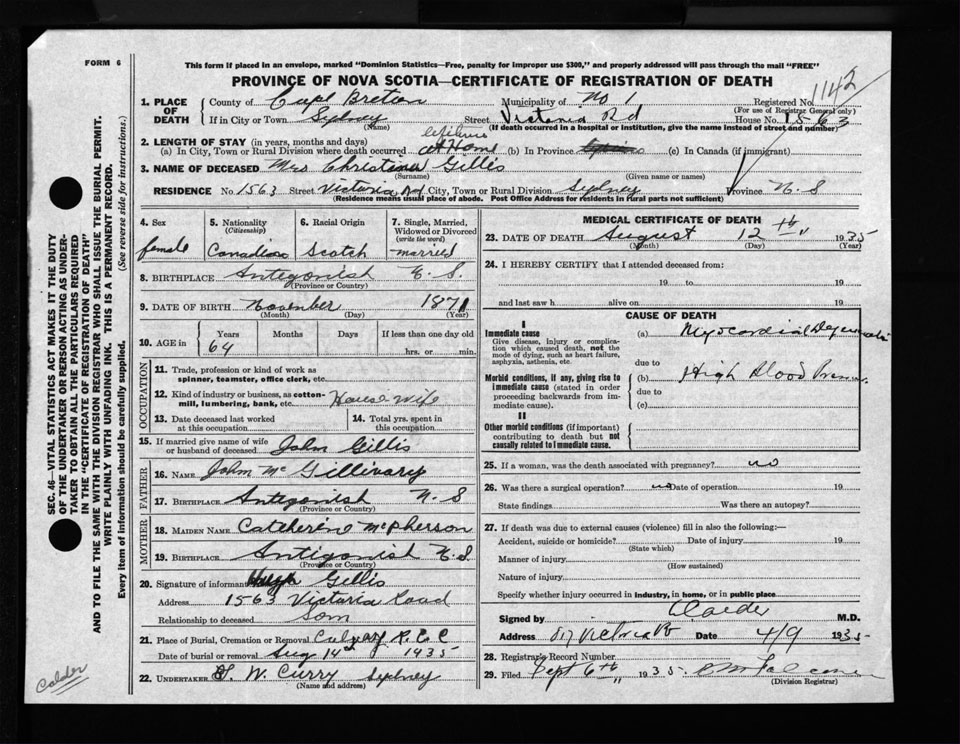 FORM 6
This form if placed in an envelope, marked "Dominion Statistics—Free, penalty for improper use $300," and properly addressed will pass through the mail "FREE"
PROVINCE OF NOVA SCOTIA—CERTIFICATE OF REGISTRATION OF DEATH
1142
1. PLACE OF DEATH
County of Cape Breton Municipality of No 1 Registered No.
(For use of Registrar General only)
If in City or Town Sydney Street Victoria Rd House No. 1563
(Name) (If death occurred in a hospital or institution, give the name instead of street and number)
2. LENGTH OF STAY (in years, months and days)
lifetime
(a) In City, Town or Rural Division where death occurred at Home (b) In Province (c) In Canada (if immigrant)
3. NAME OF DECEASED Mrs Christina Gillis
(Surname) (Given name or names)
RESIDENCE No. 1563 Street Victoria Rd City, Town or Rural Division Sydney Province N. S
(Residence means usual place of abode. Post Office Address for residents in rural parts not sufficient)
4. Sex
female
5. Nationality
(Citizenship)
Canadian
6. Racial Origin
Scotch
7. Single, Married, Widowed or Divorced
(write the word)
married
8. BIRTHPLACE Antigonish N. S.
(Province or Country)
9. DATE OF BIRTH November 1871
(Month) (Day) (Year)
10. AGE in
Years Months Days If less than one day old
64 hrs. or min.
OCCUPATION
11. Trade, profession or kind of work as
spinner, teamster, office clerk, etc.
12. Kind of industry or business, as cotton-
mill, lumbering, bank, etc. House wife
13. Date deceased last worked
at this occupation
14. Total yrs. spent in
this occupation
15. If married give name of wife
or husband of deceased John Gillis
FATHER
16. NAME John McGillivary
17. BIRTHPLACE Antigonish N. S
(Province or Country)
MOTHER
18. MAIDEN NAME Catcherine McPherson
19. BIRTHPLACE Antigonish N. S
(Province or Country)
20. Signature of informant Hugh Gillis
Address 1563 Victoria Road
Relationship to deceased Son
21. Place of Burial, Cremation or Removal Calvary R. C. C
Date of burial or removal Aug 14th 1935
22. UNDERTAKER W. Curry Sydney
(Name and address)
MEDICAL CERTIFICATE OF DEATH
23. DATE OF DEATH August 12th 1935
(Month) (Day) (Year)
24. I HEREBY CERTIFY that I attended deceased from:
19 to 19
and last saw h alive on 19
CAUSE OF DEATH
I
Immediate cause
Give disease, injury or complica-
tion which caused death, not the
mode of dying, such as heart failure,
asphyxia, asthenia, etc.
(a) Myocardial Degeneration
due to
Morbid conditions, if any, giving rise to
immediate cause (stated in order
proceeding backwards from im-
mediate cause).
(b) High Blood Pressure
due to
(c)
II
Other morbid conditions (if important)
contributing to death but not
causally related to immediate cause.
25. If a woman, was the death associated with pregnancy? no
26. Was there a surgical operation? no Date of operation 19
State findings Was there an autopsy?
27. If death was due to external causes (violence) fill in also the following:—
Accident, suicide or homicide? Date of injury 19
(State which)
Manner of injury
(How sustained)
Nature of injury
Specify whether injury occurred in industry, in home, or in public place
Signed by Calder M.D.
Address 817 Victoria Rd Date 4/9 1935
28. Registrar's Record Number
29. Filed Sept 6th 1935
(Division Registrar)
SEC. 46—VITAL STATISTICS ACT MAKES IT THE DUTY
OF THE UNDERTAKER OR PERSON ACTING AS UNDER-
TAKER TO OBTAIN ALL THE PARTICULARS REQUIRED
IN THE "CERTIFICATE OF REGISTRATION OF DEATH"
AND TO FILE THE SAME WITH THE DIVISION REGISTRAR WHO SHALL ISSUE THE BURIAL PERMIT.
WRITE PLAINLY WITH UNFADING INK. THIS IS A PERMANENT RECORD.
Every item of information should be carefully supplied. (See reverse side for instructions.)
Calder